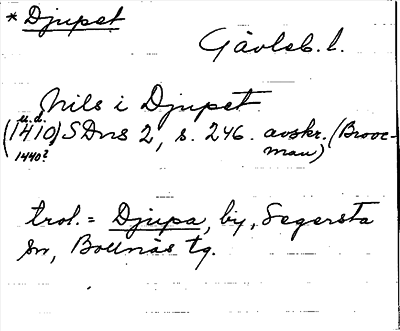 * Djupet
Gävleb. l.
Nils i Djupet
u.d.
(1410) SDns 2, s. 246. avskr. (Brooc-
1440? man)
trol. = Djupa, by, Segersta
sn, Bollnäs tg.